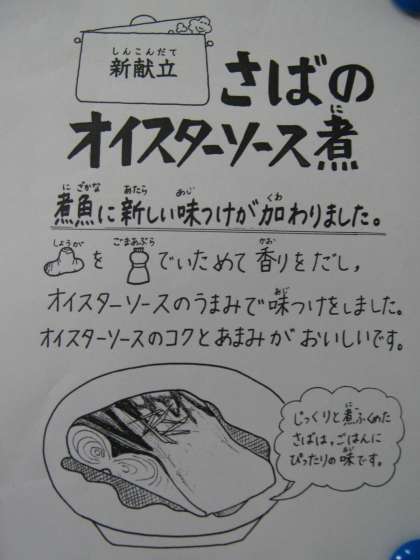 しんこんだて
新献立
さばの
オイスターソース煮
に
に ざかな あたら あじ くわ
煮魚に新しい味つけが加わりました。
しょうが ごまあぶら かお
を でいためて香りをだし,
あじ
オイスターソースのうまみで味つけをしました。
オイスターソースのコクとあまみがおいしいです。
に
じっくりと煮ふくめた
さばは,ごはんに
あじ
ぴったりの味です。